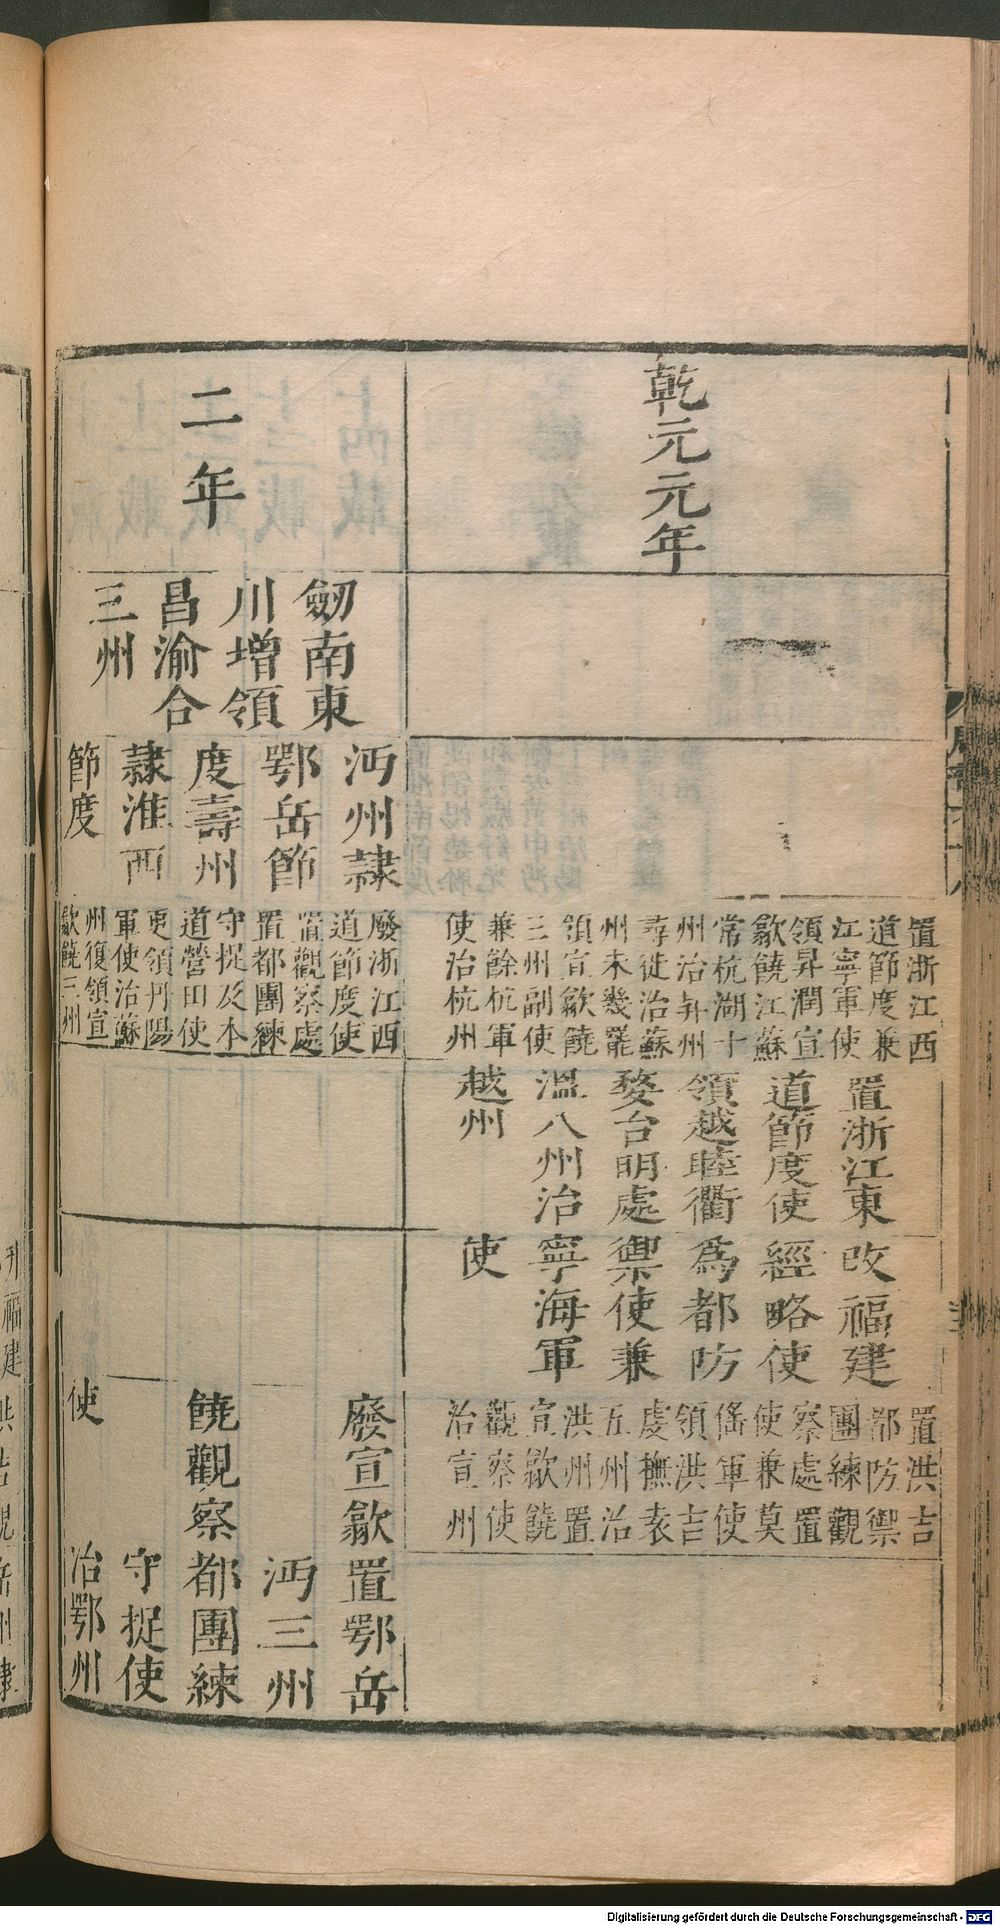 乾元元年
置浙江西
道節度兼
江寧軍使
領昇潤宣
歙饒江蘇
常杭湖十
州治昇州
尋徙治蘇
州未幾罷
領宣歙饒
三州副使
兼餘杭軍
使治杭州
置浙江東
道節度使
領越睦衢
婺台明處
溫八州治
越州
改福建
經略使
爲都防
禦使兼
寧海軍
使
置洪吉
都防禦
團練觀
察處置
使兼莫
傜軍使
領洪吉
虔撫袁
五州治
洪州置
宣歙饒
觀察使
治宣州
二年
劒南東
川增領
昌渝合
三州
沔州隷
鄂岳節
度壽州
隷淮西
節度
廢浙江西
道節度使
置觀察處
置都團練
守捉及本
道營田使
更領丹陽
軍使治蘇
州復領宣
歙饒三州
廢宣歙
饒觀察
使
置鄂岳
沔三州
都團練
守捉使
治鄂州
Digitalisierung gefördert durch die Deutsche Forschungsgemeinschaft - DFG